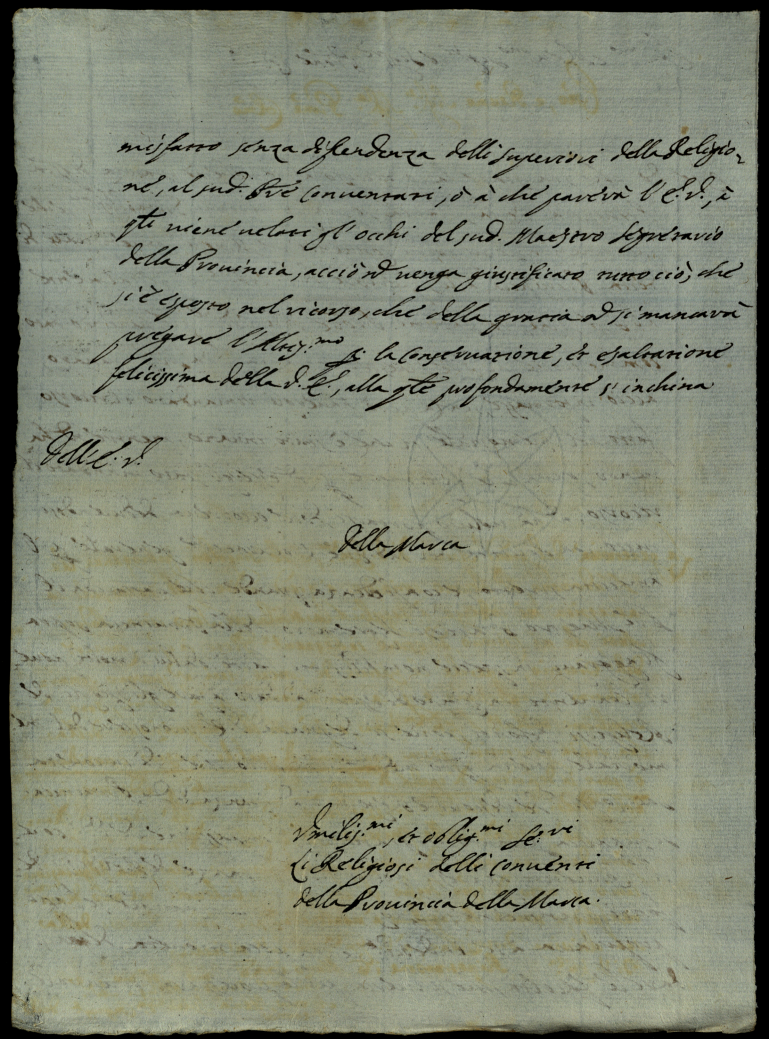 misfatto senza dispendenza delli superiori della Religio=
ne, al sud. Pre Conventari, ò à che parerà l'E.V., à
qle viene velati gl'occhi del sud. Maestro Segretario
della Provincia, acciò nō venga giustificato tutto ciò, che
si è esposto nel ricorso, che della gratia nō si mancarà
pregare l'Altis.mo p. la Conservazione, et esaltatione
felicissima della V. E., alla qle profondamente s'inchina
Dell'E.V.
della Marca
Vmilis.mi, et oblig.mi Se.vi
Li Religiosi delli Conventi
della Provincia della Marca.